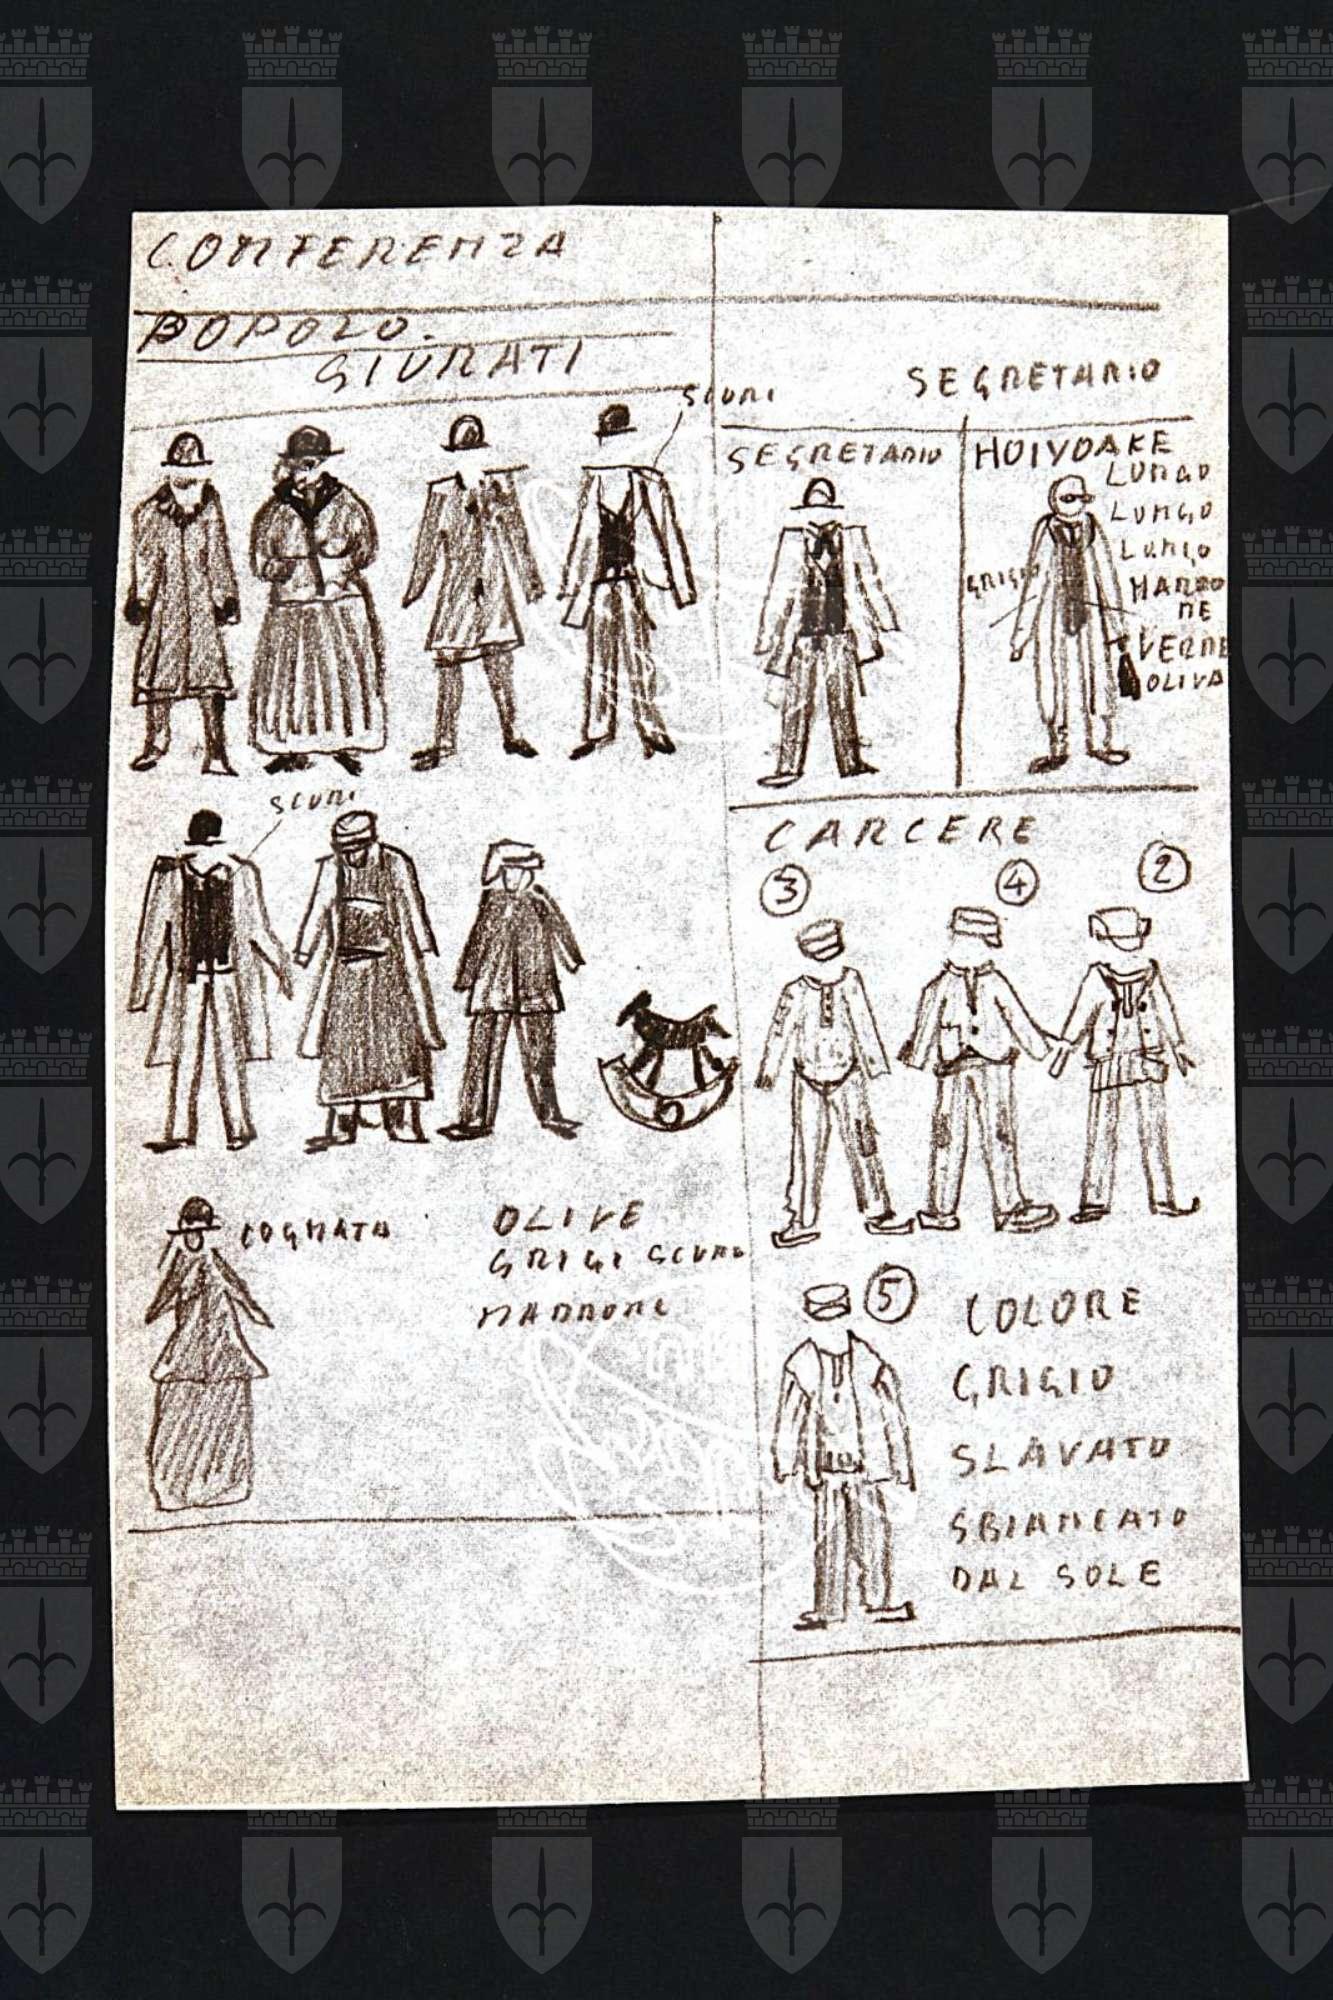 CONFERENZA
POPOLO.
GIURATI
SCURI
SEGRETARIO
SEGRETARIO
HOLYOAKE
LUNGO
LUNGO
LUNGO
GRIGIO
MARRO
NE
VERDE
OLIVA
SCURI
CARCERE
3
4
2
COGNATA
OLIVE
GRIGI SCURO
MARRONE
5
COLORE
GRIGIO
SLAVATO
SBIANCATO
DAL SOLE